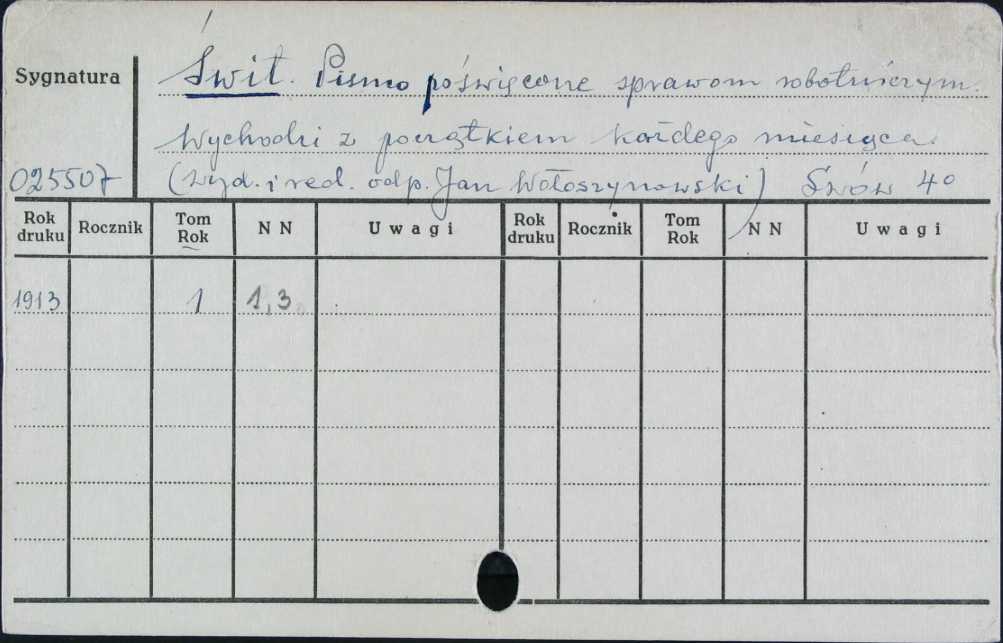 Sygnatura
Świt. Pismo poświęcone sprawom robotniczym.
Wychodzi z początkiem każdego miesiąca.
025507 (wyd. i red. odp. Jan Wołoszynowski) Lwów 4°
Rok druku Rocznik Tom Rok N N Uwagi Rok druku Rocznik Tom Rok N N Uwagi
1913 1 1,3